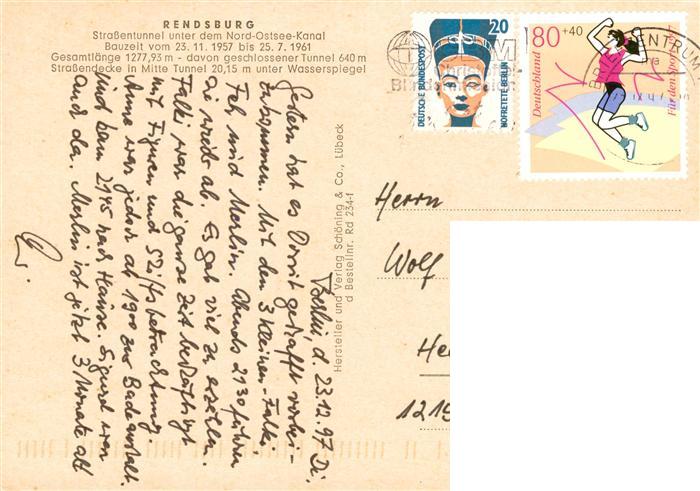 RENDSBURG
Straßentunnel unter dem Nord-Ostsee-Kanal
Bauzeit vom 23. 11. 1957 bis 25. 7. 1961
Gesamtlänge 1277,93 m - davon geschlossener Tunnel 640 m
Straßendecke in Mitte Tunnel 20,15 m unter Wasserspiegel
Berlin, d. 23.12.97 Di.
Gestern hat es Dorit geschafft vorbei-
zukommen. Mit den 3 Kleinen - Falki,
Feh und Merlin. Abends 2130 fuhren
sie weib ab. Es gab viel zu erzählen.
Falki war die ganze Zeit beschäftigt
mit Figuren und betrachtung.
Anne war jedoch ab 1900 zur Badeanstalt
und kam 2145 nach Hause. Sigurd war
auch da. Merlin ist jetzt 3 Monate alt
Hersteller und Verlag Schöning & Co., Lübeck
d Bestellnr. Rd 234-f
DEUTSCHE BUNDESPOST
20
NOFRETETE BERLIN
80 +40
Deutschland
Für den Sport
ZENTRUM
Herrn
Wolf
He
1219